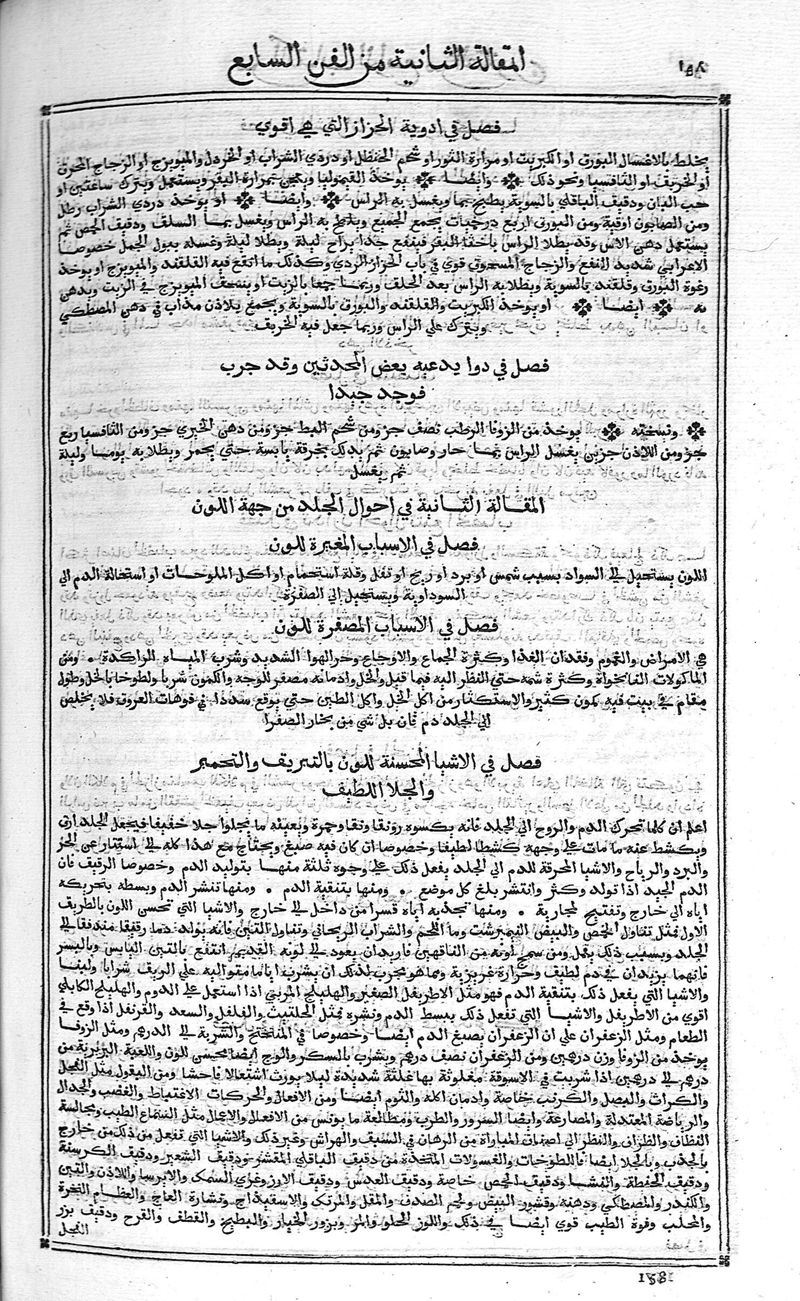 المقالة الثانية من الفن السابع
١٥٨
فصل في ادوية الحزاز التي هي اقوي
يخلط بالاغسال البورق او الكبريت او مرارة الثور او شحم الحنظل او دردي الشراب او الخردل والميويزج او الزجاج المحرق
او الخربق او الثافسيا ونحو ذلك ❖ وايضا ❖ يوخذ القيموليا ويعجن بمرارة البقر ويستعمل ويترك ساعتين او
حب البان ودقيق الباقلي بالسوية يطبخ بما ويغسل به الراس ❖ وايضا ❖ او يوخذ دردي الشراب رطل
ومن الصابون اوقية ومن البورق اربع درخميات يجمع الجميع ويلطخ به الراس ويغسل بما السلق ودقيق الحمص ثم
يستعمل دهن الاس وقد يطلا الراس باخثا البقر فينفع جدا يراح ليلة ويطلا ليلة وغسله ببول الجمل خصوصا
الاعرابي شديد النفع والزجاج المسحوق قوي في باب الحزاز الردي وكذلك ما انقع فيه القلقند والميويزج او يوخذ
رغوة البورق وقلقند بالسوية ويطلا به الراس بعد الحلق وربما جمعا بالزيت او يسحق الميويزج في الزيت ويدهن
به ❖ ايضا ❖ او يوخذ الكبريت والقلقند والبورق بالسوية ويجمع بلاذن مذاب في دهن المصطكي
ويترك علي الراس وربما جعل فيه الخربق
فصل في دوا يدعيه بعض المحدثين وقد جرب
فوجد جيدا
❖ ونسخته ❖ يوخذ من الزوفا الرطب نصف جز ومن شحم البط جز ومن دهن الخيري جز ومن الثافسيا ربع
جز ومن اللاذن جزين يغسل الراس بما حار وصابون ثم يدلك بخرقة يابسة حتي يحمر ويطلا به يوما وليلة
ثم يغسل
المقالة الثانية في احوال الجلد من جهة اللون
فصل في الاسباب المغيرة للون
اللون يستحيل الي السواد بسبب شمس او برد او ريح او ثفل وقلة استحمام او اكل الملوحات او استحالة الدم الي
السوداوية ويستحيل الي الصفرة
فصل في الاسباب المصفرة للون
هي الامراض والغموم وفقدان الغذا وكثرة الجماع والاوجاع وحر الهوا الشديد وشرب المياه الراكدة ٠ ومن
الماكولات النانخواة وكثرة شمه حتي النظر اليه فيما قيل والخل وادمانه مصفر للوجه والكمون شربا ولطوخا بالخل وطول
مقام في بيت فيه كمون كثير والاستكثار من اكل الخل واكل الطين حتي يوقع سددا في فوهات العروق فلا يخلص
الي الجلد دم قان بل شي من بخار الصفرا
فصل في الاشيا المحسنة للون بالتبريق والتحمير
والجلا اللطيف
اعلم ان كلما تحرك الدم والروح الي الجلد فانه يكسوه رونقا ونقا وحمرة ويعينه ما يجلوا جلا خفيفا فيجعل الجلد ارق
ويكشط عنه ما مات علي وجهه كشطا لطيفا وخصوصا ان كان فيه صبغ ويحتاج مع هذا كله الي استتار عن الحر
والبرد والرياح والاشيا المحركة للدم الي الجلد يفعل ذلك علي وجوه ثلثة منها بتوليد الدم وخصوصا الرقيق فان
الدم الجيد اذا تولد وكثر وانتشر بلغ كل موضع ٠ ومنها بتنقية الدم ٠ ومنها تنشر الدم وبسطه بتحريكه
اياه الي خارج وتفتيح لمجاريه ٠ ومنها تجذبه اياه قسرا من داخل الي خارج والاشيا التي تحسن اللون بالطريق
الاول فمثل تناول الحمص والبيض النيمبرشت وما اللحم والشراب الريحاني وتناول التين فانه يولد دما رقيقا مندفعا الي
الجلد وبسبب ذلك يقمل ومن سمج لونه من الناقهين فاريد ان يعود الي لونه القديم انتفع بالتين اليابس وبالبسر
فانهما يزيدان في دم لطيف وحرارة غريزية ومما هو مجرب لذلك ان يشرب اياما متوالية علي الريق شرابا ولبنا
والاشيا التي يفعل ذلك بتنقية الدم فهو مثل الاطريفل الصغير والهليلج المربي اذا استعمل علي الدوم والهليلج الكابلي
اقوي من الاطريفل والاشيا التي تفعل ذلك ببسط الدم ونشره فمثل الحلتيث والفلفل والسعد والقرنفل اذا وقع في
الطعام ومثل الزعفران علي ان الزعفران يصبغ الدم ايضا وخصوصا في المنفختج والشربة الي الدرهم ومثل الزوفا
يوخذ من الزوفا وزن درهمين ومن الزعفران نصف درهم ويشرب بالسكر والوج ايضا محسن للون واللعبة البربرية من
درهم الي درهمين اذا شربت في الاسوقة مغلوثة بها غلثة شديدة ليلا يورث اشتعالا فاحشا ومن البقول مثل الفجل
والكراث والبصل والكرنب خاصة وادمان اكله والثوم ايضا ومن الافعال والحركات الاغتباط والغضب والجدال
والرياضة المعتدلة والمصارعة وايضا السرور والطرب ومطالعة ما يونس من الافعال والاعمال مثل السماع الطيب ومجالسة
النظاف والظراف والنظر الي اصناف المباراة من الرهان في السبق والهراش وغير ذلك والاشيا التي تفعل من ذلك من خارج
بالجذب وبالجلا ايضا فاللطوخات والغسولات المتخذة من دقيق الباقلي المقشر ودقيق الشعير ودقيق الكرسنة
ودقيق الحنطة والنشا ودقيق الحمص خاصة ودقيق العدس ودقيق الارز وغري السمك والايرسا واللاذن والتين
والكندر والمصطكي ودهنه وقشور البيض ولحم الصدف والمقل والمرتك والاسفيداج ونشارة العاج والعظام النخرة
والمحلب وقوة الطيب قوي ايضا في ذلك واللوز الحلو والمر وبزور الخيار والبطيخ والقطف والقرع ودقيق بزر
الفجل
158